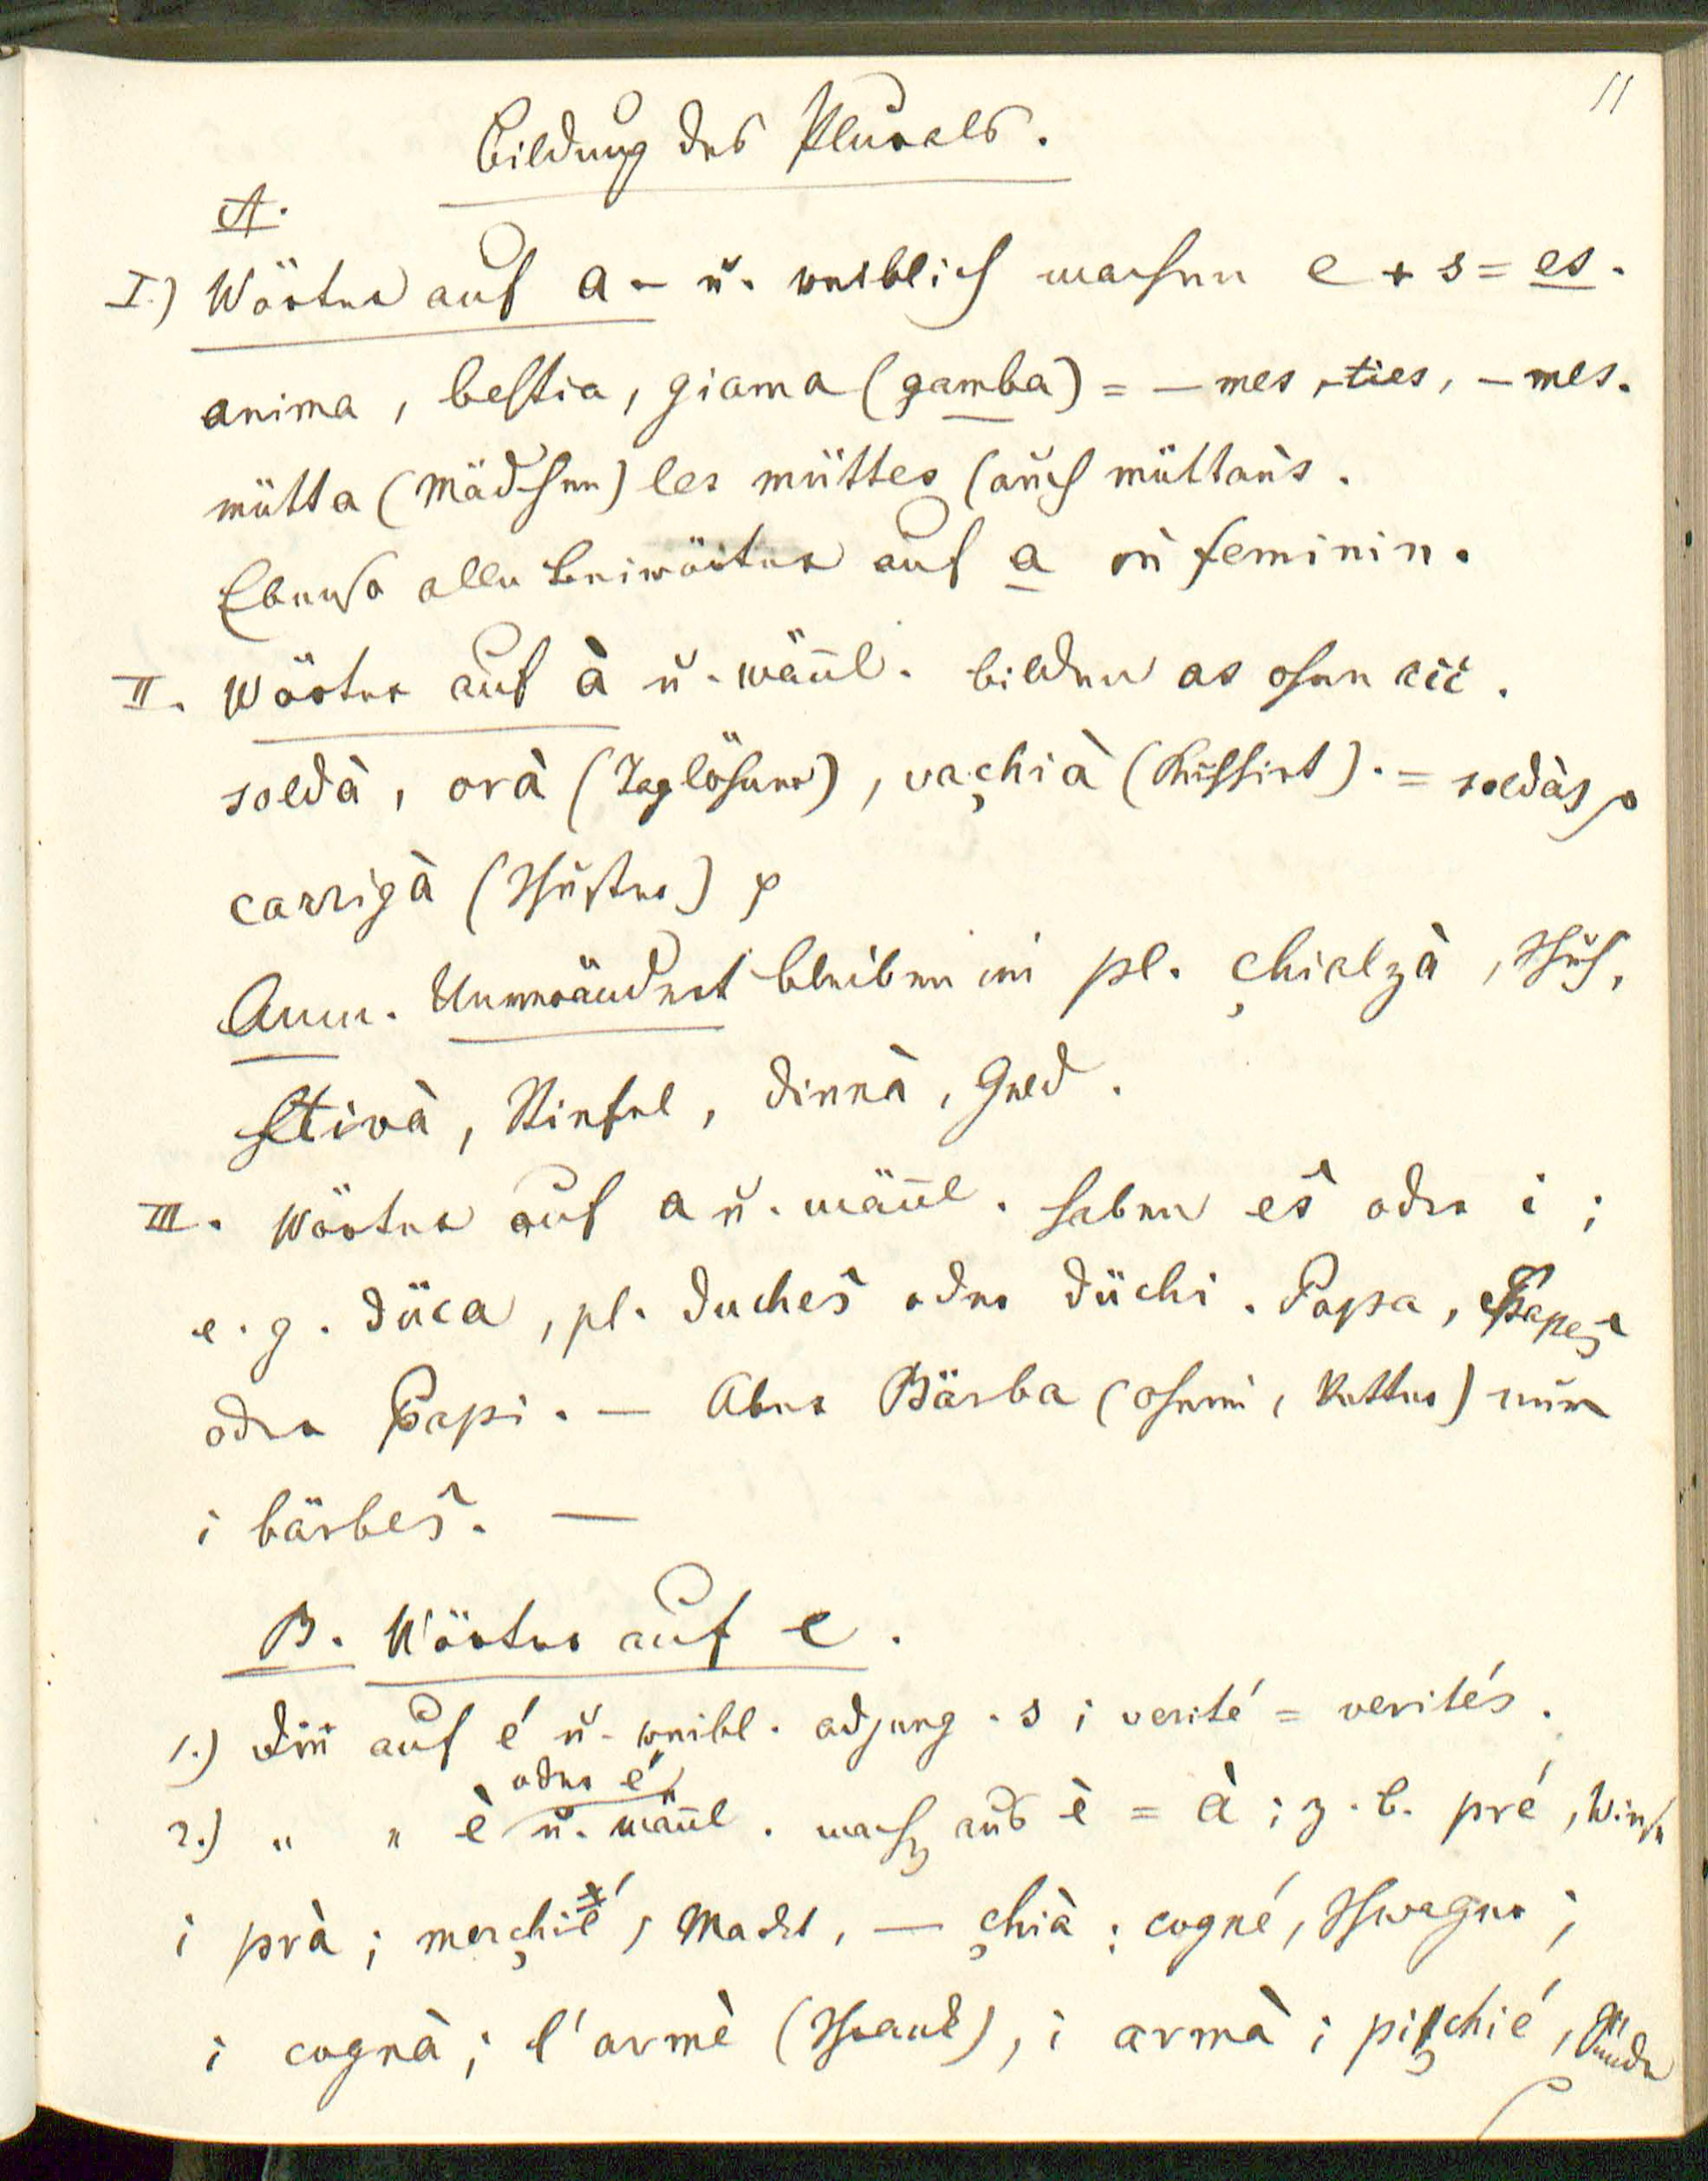 11
Bildung des Plurals.
A.
I.) Wörter auf a - u. weiblich machen e + s = es.
anima, bestia, giama (gamba) = – mes, -ties, – mes.
mütta (Mädchen) les müttes (auch müttaǹs.
Ebenso alle Beiwörter auf a im feminin.
II. Wörter auf à u. mäñl. bilden as ohne
soldà, orà (Taglöhner), vaçhià (Kuhhirt). = soldàs
carrigà (Schuster)
Anm. Unverändert bleiben im pl. çhialzà, Schuh,
stivà, Stiefel, dinnà, Geld.
III. Wörter auf a u. mäñl. haben es̀ oder i ;
e. g. düca, pl. duches̀ oder düchi. Papa, Papes̀
oder Papi. — Aber Bärba (Oheim, Vetter) nur
i bärbes̀. —
B. Wörter auf e.
1.) Die auf é u. weibl. adjung. s ; verité = verités.
oder é
2.) " " è u. mäñl. mach aus è = à ; z. b. pré, Wiese
i prà ; merçhié, Markt, — çhià ; cogné, Schwager ;
i cognà ; l'armè (Schrank), i armà ; piçchié, Sünde